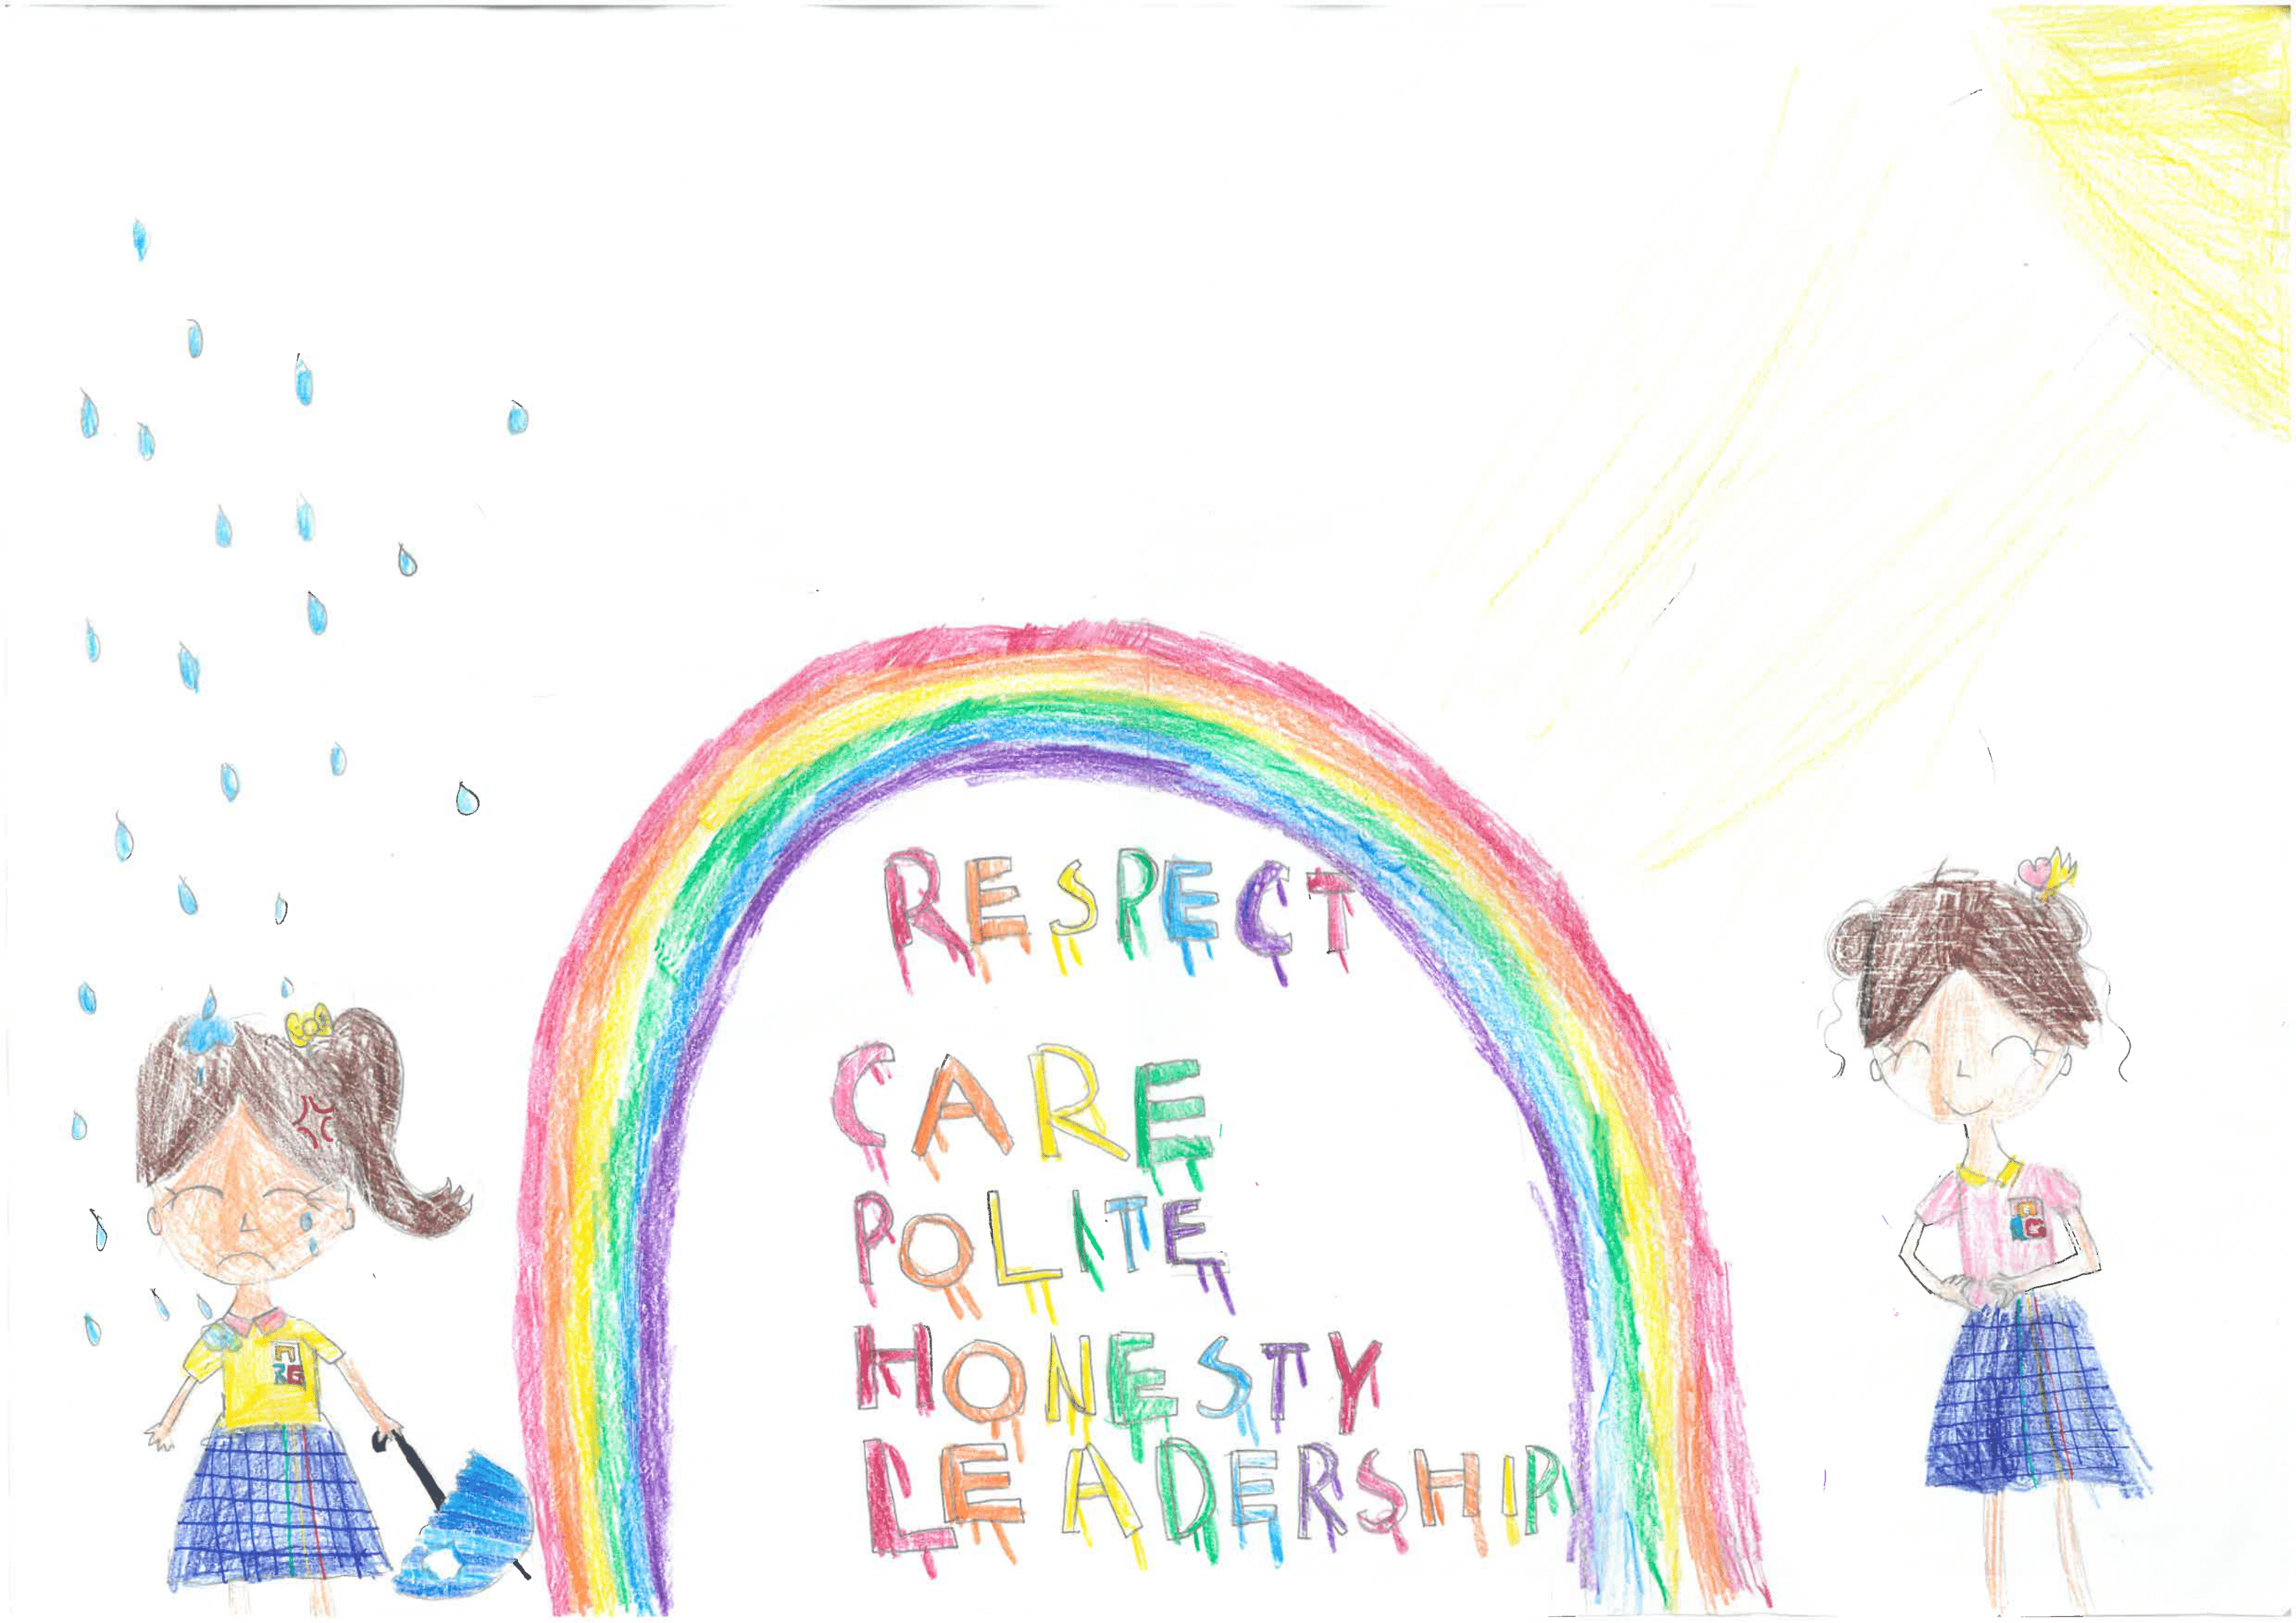 RESPECT
CARE
POLITE
HONESTY
LEADERSHIP